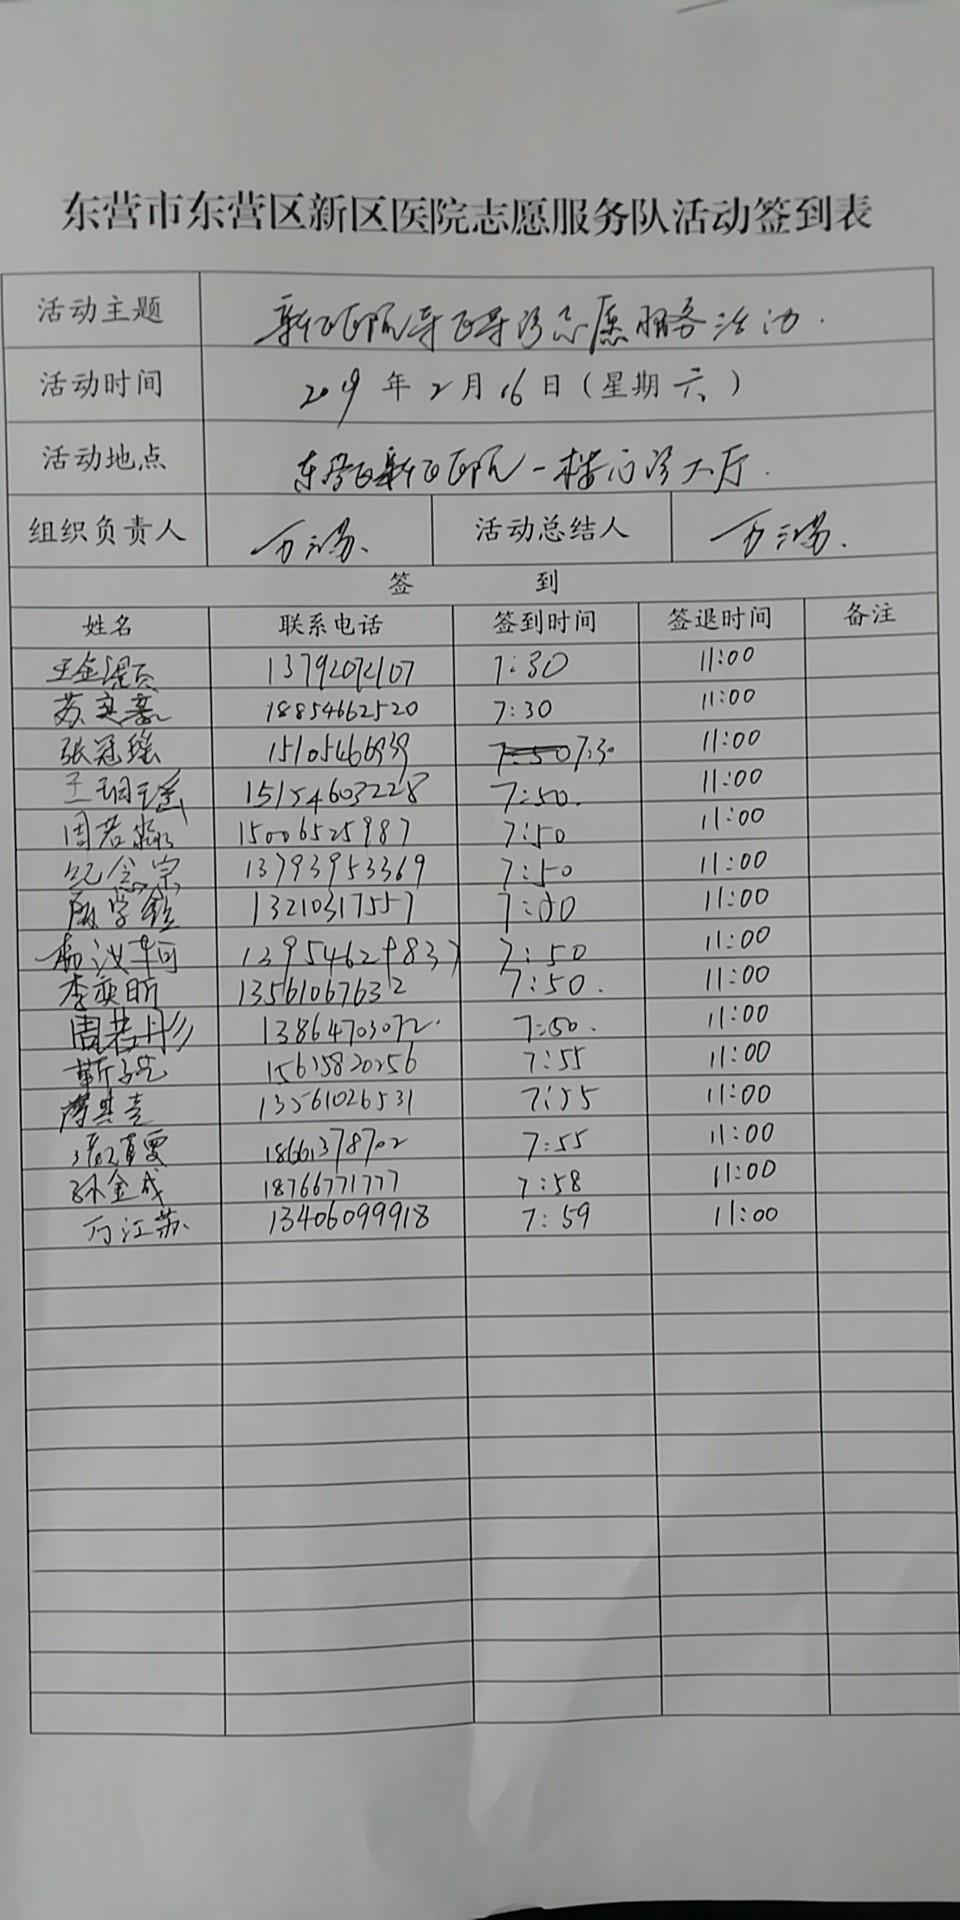 东营市东营区新区医院志愿服务队活动签到表
活动主题 新区医院导医导诊志愿服务活动.
活动时间 2019年2月16日（星期六）
活动地点 东营区新区医院一楼门诊大厅.
组织负责人 活动总结人
签 到
姓名 联系电话 签到时间 签退时间 备注
13792072107 7:30 11:00
18854662520 7:30 11:00
张冠瑶 7:30 11:00
15154603228 7:50. 11:00
周若 15006525987 7:50 11:00
纪念宗 13793953369 7:50 11:00
13210317557 11:00
7:50 11:00
李奕昕 13561067632 7:50. 11:00
周若彤 13864703072. 7:50. 11:00
靳 15615820256 7:55 11:00
13561026531 7:55 11:00
18661378702 7:55 11:00
孙金成 18766771777 7:58 11:00
万江苏 13406099918 7:59 11:00